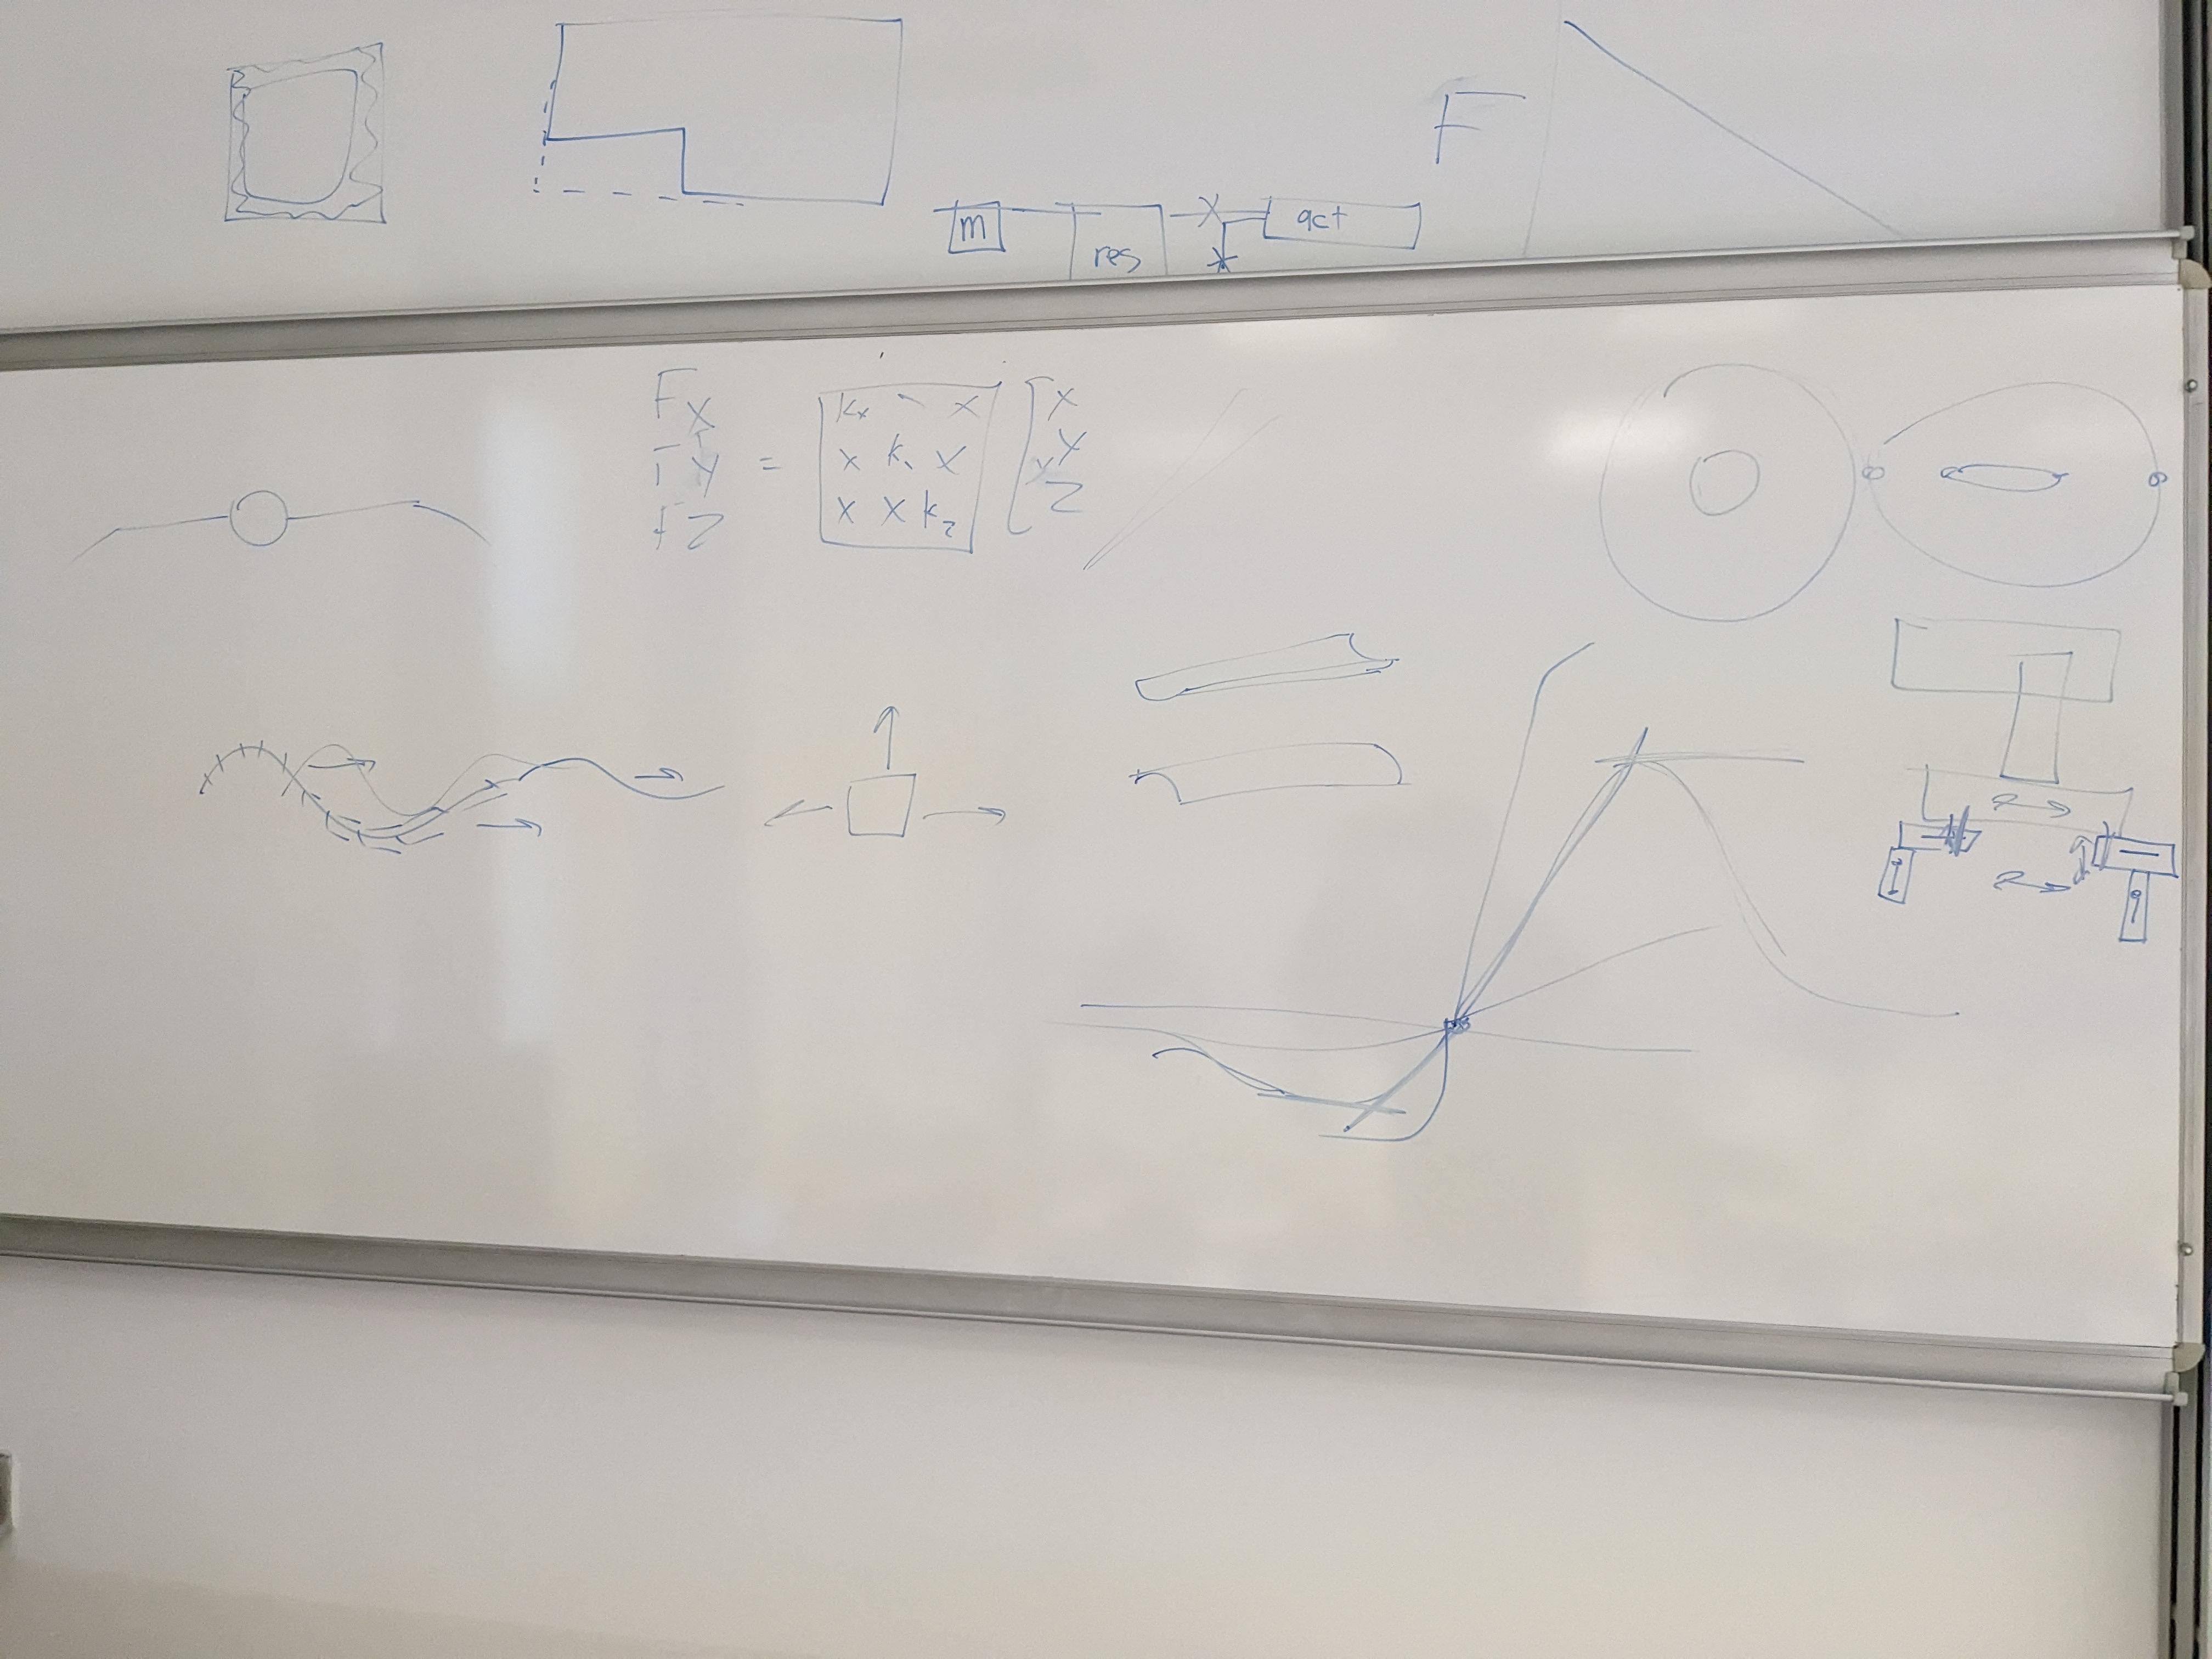 F
m
res
act
Fx
Fy
Fz
=
kx - x
x k x
x x kz
x
y
z